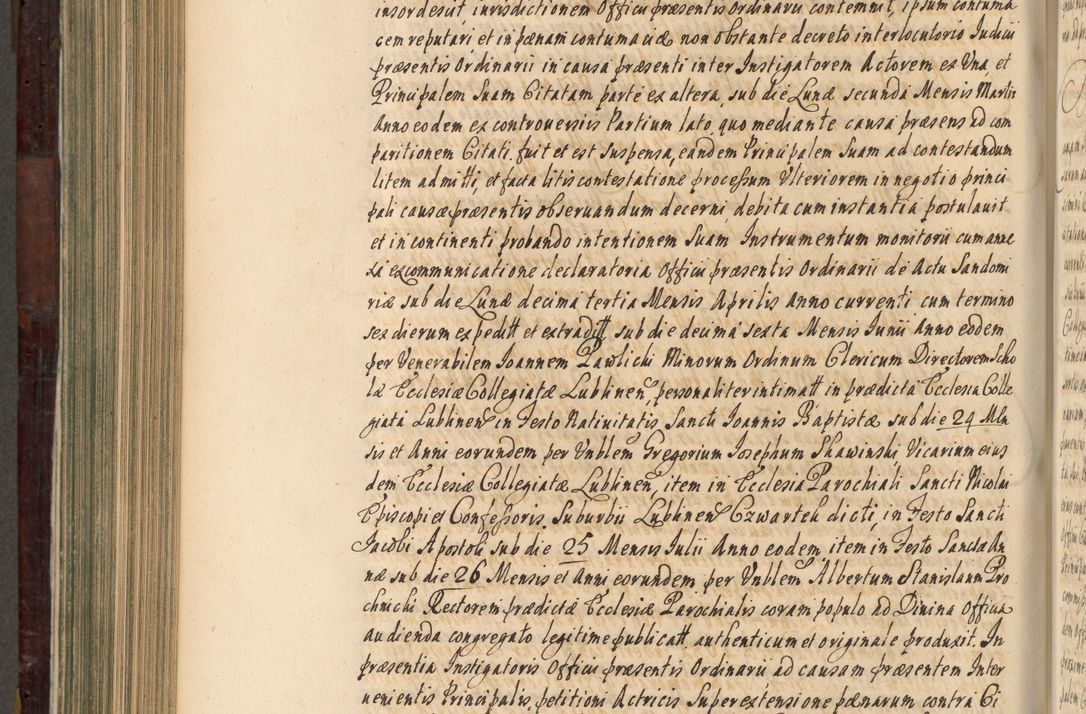 insordescit iurisdictionem Officii præsentis Ordinarii contemnit, ipsum contuma
cem reputari et in pœnam contumaciæ non obstante decreto interlocutorio Iudicii
præsentis Ordinarii in causa præsenti inter Instigatorem Actorem ex Una, et
Principalem Suam Citatam parte ex altera, sub die Lunæ secunda Mensis Martii
Anno eodem ex controversiis Partium lato, quo mediante causa præsens ad com
paritionem Citati fuit et est suspensa, eandem Principalem Suam ad contestandum
litem admitti, et facta litis contestatione processum Ulteriorem in negotio princi
pali causæ præsentis observandum decerni debita cum instantia postulavit
et in continenti probando intentionem Suam Instrumentum monitorii cum anne
xa excommunicatione declaratoria Officii præsentis Ordinarii de Actu Sandomi
riæ sub die Lunæ decima tertia Mensis Aprilis Anno currenti cum termino
sex dierum expeditt et extraditt sub die decima sexta Mensis Iunii Anno eodem
per Venerabilem Ioannem Pawlicki Minorum Ordinum Clericum Directorem Scho
læ Ecclesiæ Collegiatæ Lublinen, personaliter intimatt in prædicta Ecclesia Colle
giata Lublinen in Festo Nativitatis Sancti Ioannis Baptistæ sub die 24 Men
sis et Anni eorundem per Vnblem Gregorium Iosephum Skawinski, Vicarium eius
dem Ecclesiæ Collegiatæ Lublinen, item in Ecclesia Parochiali Sancti Nicolai
Episcopi et Confessoris Suburbii Lublinen Czwartek dicti, in Festo Sancti
Iacobi Apostoli sub die 25 Mensis Iulii Anno eodem, item in Festo Sanctæ An
næ sub die 26 Mensis et Anni eorundem per Vnblem Albertum Stanislaum Pro
chnicki Rectorem prædictæ Ecclesiæ Parochialis coram populo ad Divina Officia
audienda congregato legitime publicatt authenticum et originale produxit. In
præsentia Instigatoris Officii præsentis Ordinarii ad causam præsentem Inter
venientis Principalis, petitioni Actricis Super extensione pœnarum contra Ci